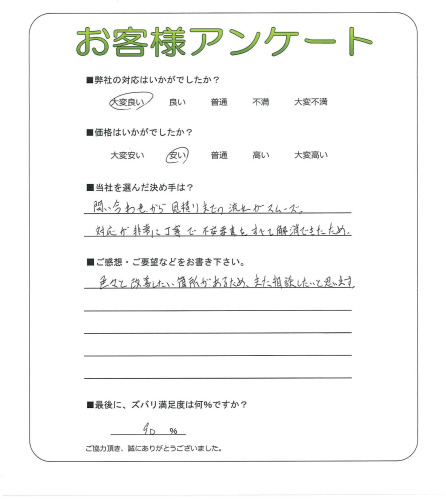 お客様アンケート
■弊社の対応はいかがでしたか？
大変良い 良い 普通 不満 大変不満
■価格はいかがでしたか？
大変安い 安い 普通 高い 大変高い
■当社を選んだ決め手は？
問い合わせから見積りまでの流れがスムーズ。
対応が非常に丁寧で不安要素をすべて解消できたため。
■ご感想・ご要望などをお書き下さい。
色々と改善したい箇所があるため、また相談したいと思います
■最後に、ズバリ満足度は何%ですか？
90 %
ご協力頂き、誠にありがとうございました。